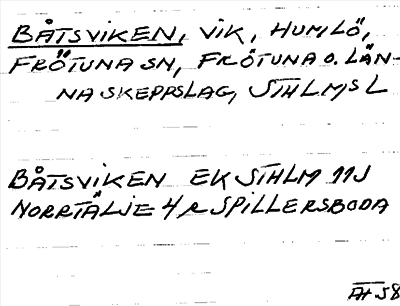 BÅTSVIKEN, VIK, HUMLÖ,
FRÖTUNA SN, FRÖTUNA O. LÄN-
NA SKEPPSLAG, STHLMS L
BÅTSVIKEN EK STHLM 11J
NORRTÄLJE 4 R SPILLERSBODA
AH 58